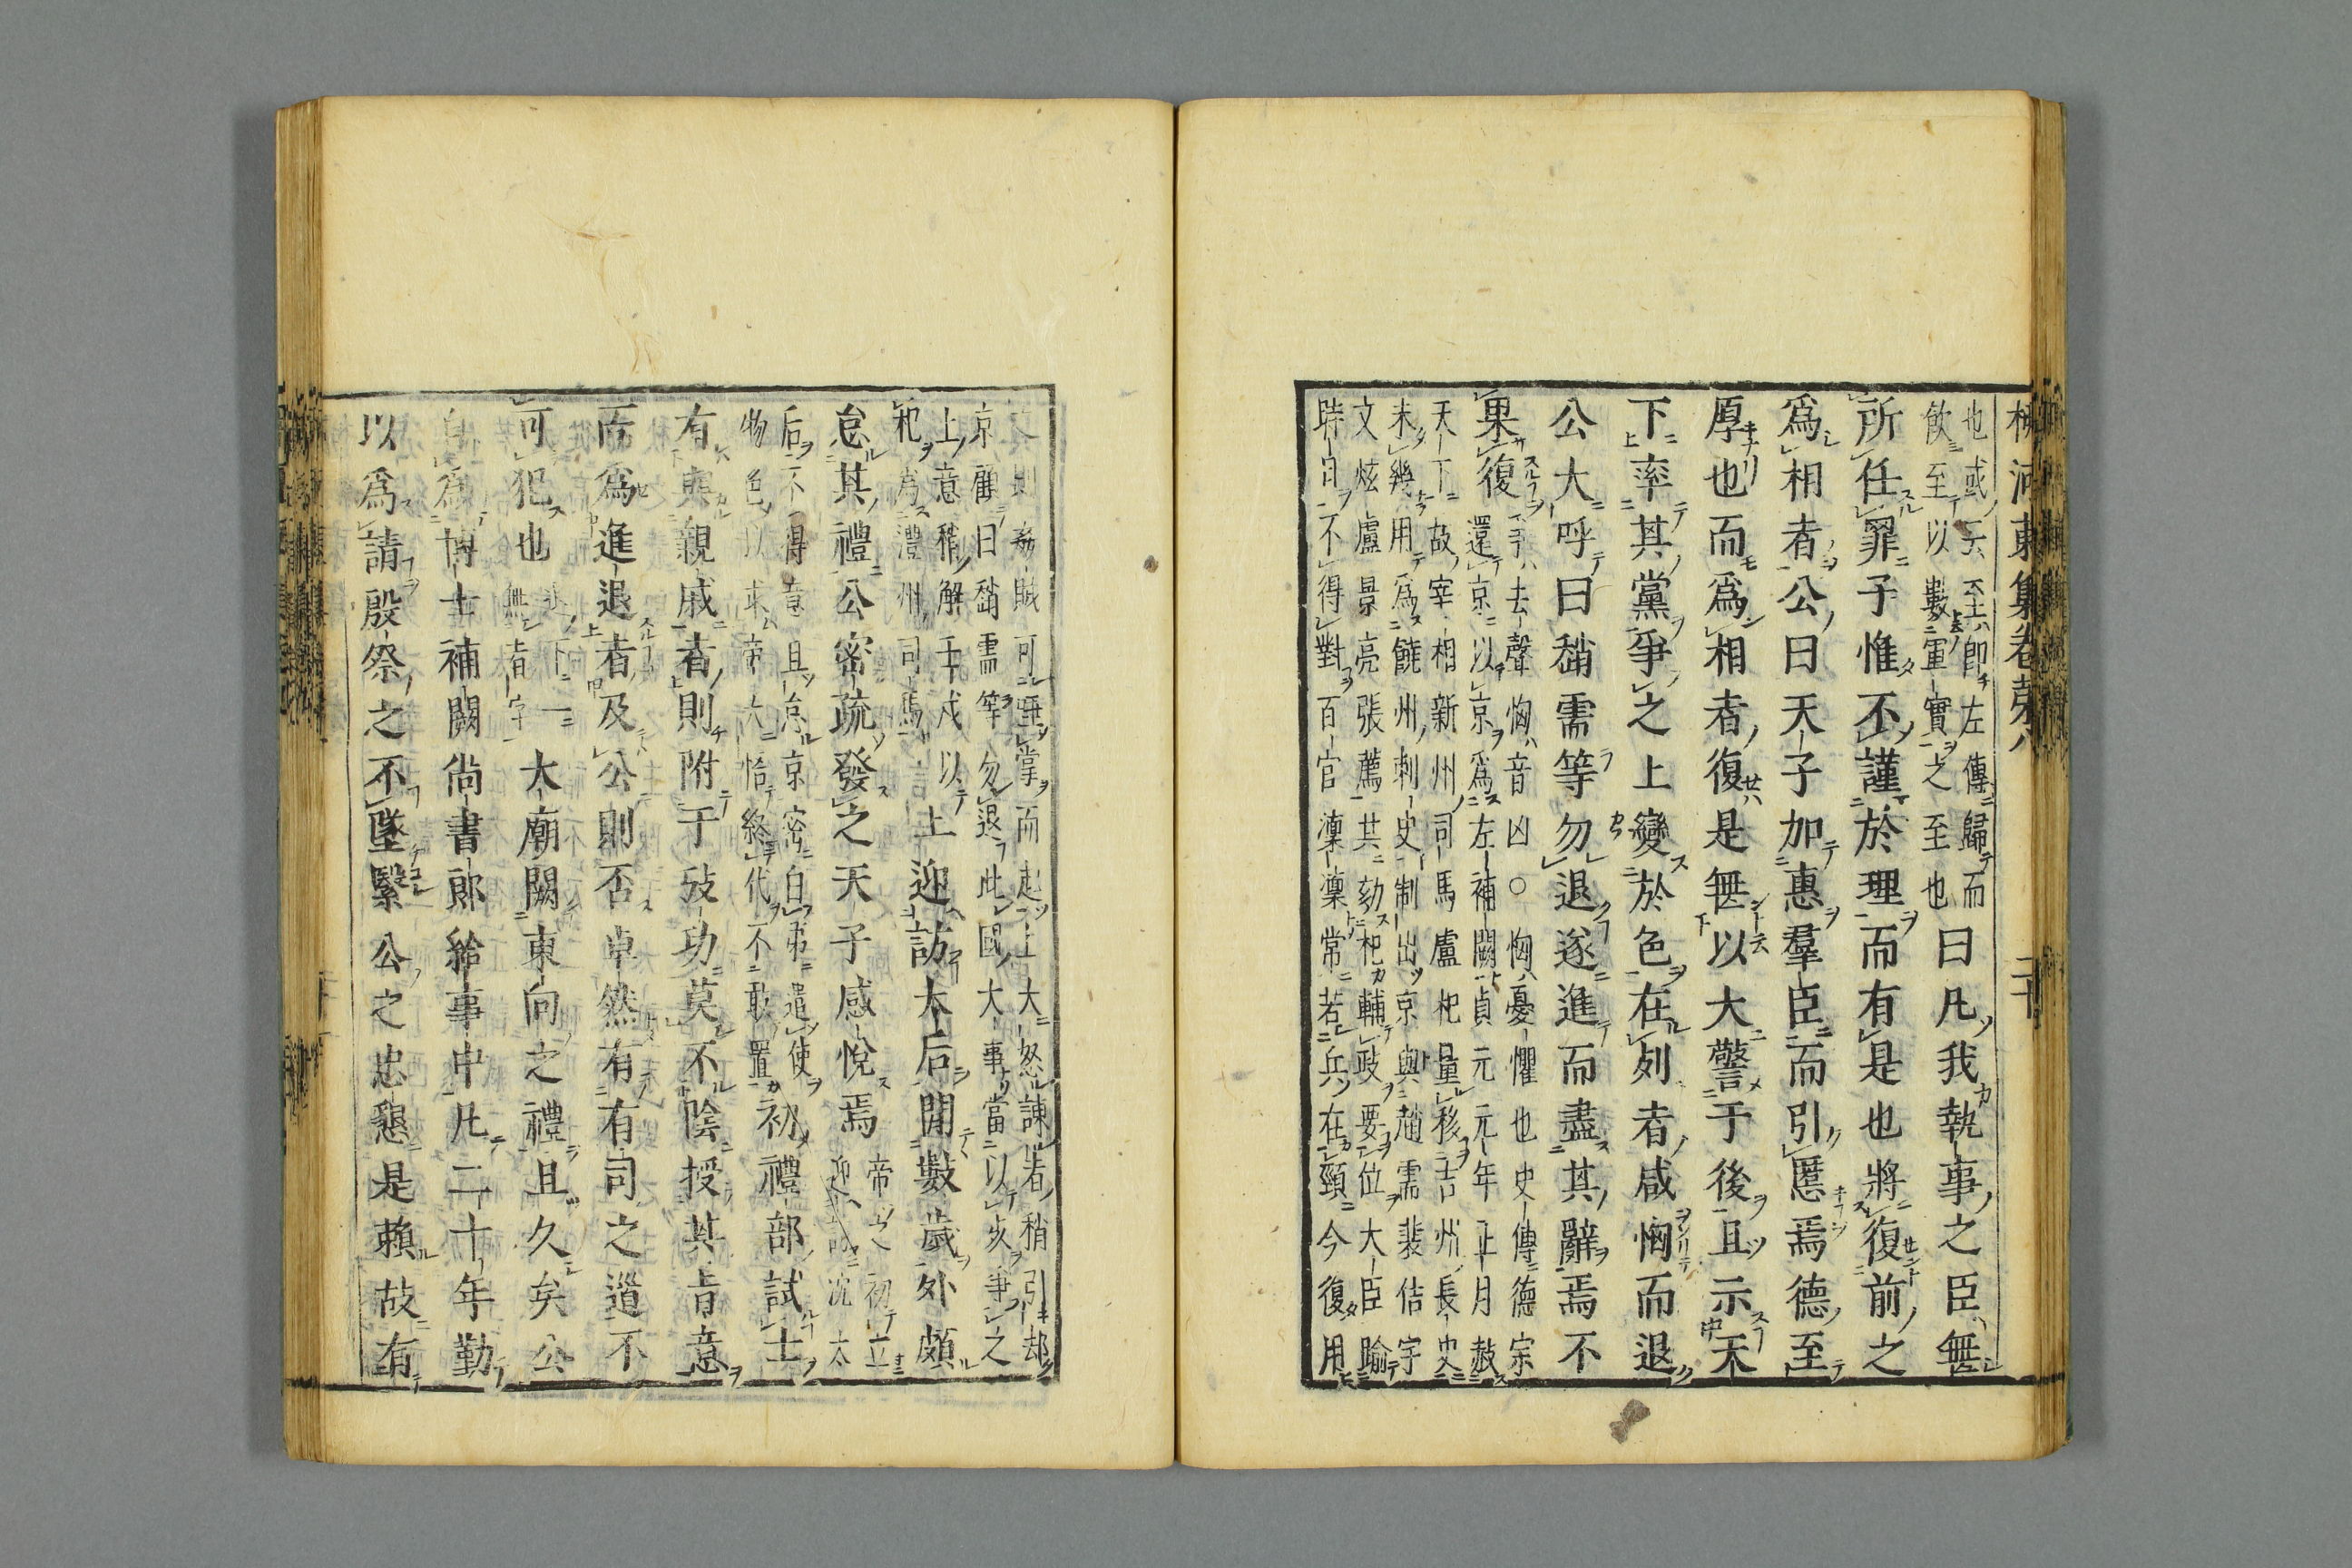 柳河東集卷第八
二十
也或云至即左傳歸而
飲至以數軍實之至也
曰凡我執事之臣無
所任罪子惟不謹於理而有是也將復前之
爲相者公曰天子加惠羣臣而引慝焉德至
厚也而爲相者復是無以大警于後且示天
下率其黨爭之上變於色在列者咸恟而退
公大呼曰趙需等勿退遂進而盡其辭焉不
果復
亏去聲恟音凶○恟憂懼也史傳德宗
還京以京爲左補闕貞元元年正月赦
天下故宰相新州司馬盧杞量移吉州長史
未幾用爲饒州刺史制出京與趙需裴佶宇
文炫盧景亮張薦共劾杞輔政要位大臣踰
時日不得對百官凜凜常若兵在頸今復用
則姦賊可唾掌而起上大怒諫者稍引却
京顧曰趙需等勿退此國大事當以死爭之
上意稍解壬戌以
杞爲澧州司馬
上迎訪太后間數歲外頗
怠其禮公密疏發之天子感悅焉
帝之初立
迎訪沈太
后不得意且怠京密白弟遣使
物色以求帝大恰終代不敢置
初禮部試士
有與親戚者則附于攷功莫不陰授其旨意
而爲進退者及公則否卓然有有司之道不
可犯也
進下一
無者字
太廟闕東向之禮且久矣公
自爲博士補闕尚書郎給事中凡二十年勤
以爲請殷祭之不墜繄公之忠懇是賴故有